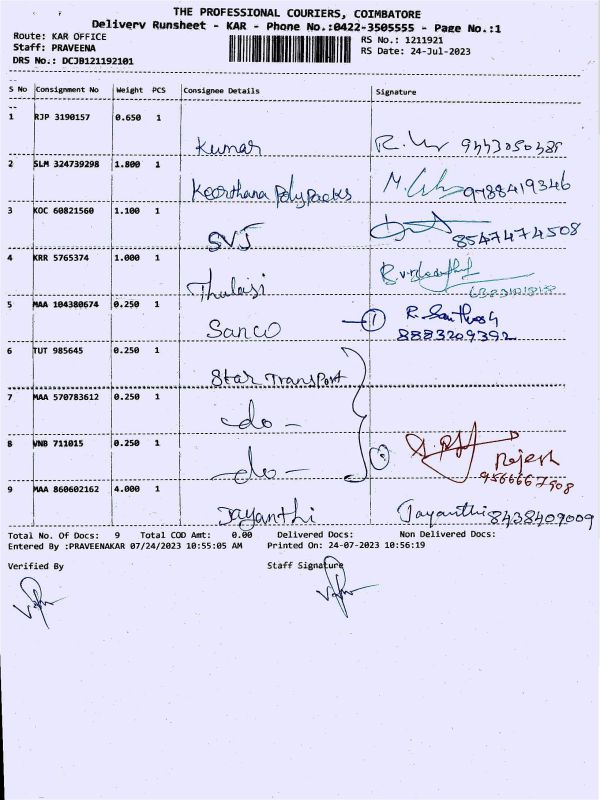 THE PROFESSIONAL COURIERS, COIMBATORE
Delivery Runsheet - KAR - Phone No.:0422-3505555 - Page No.:1
Route: KAR OFFICE
RS No.: 1211921
Staff: PRAVEENA
RS Date: 24-Jul-2023
DRS No.: DCJB121192101
S No Consignment No Weight PCS Consignee Details Signature
1 RJP 3190157 0.650 1
Kumar R.
2 SLM 324739298 1.800 1
Keerthana Poly Packs 9788419346
3 KOC 60821560 1.100 1
SVJ 8547474508
4 KRR 5765374 1.000 1
Thulasi
5 MAA 104380674 0.250 1
Sanco 1 R. Santhosh
8883209392
6 TUT 985645 0.250 1
Star Transport
7 MAA 570783612 0.250 1
-do-
8 VNB 711015 0.250 1
-do- Rajesh
9566667908
9 MAA 860602162 4.000 1
Jayanthi Jayanthi 8438409009
Total No. Of Docs: 9 Total COD Amt: 0.00 Delivered Docs: Non Delivered Docs:
Entered By :PRAVEENAKAR 07/24/2023 10:55:05 AM Printed On: 24-07-2023 10:56:19
Verified By Staff Signature